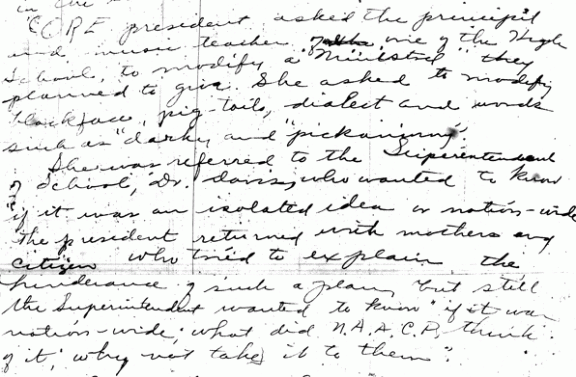 in the
CORE president asked the principil
and music teacher of one of the High
School, to modify a "Minstrel" they
planned to give. She asked to modify
blackface, pig-tails, dialect and words
such as "darky and "pickaninny".
She was referred to the Superentendent
of School, Dr. Davis, who wanted to know
if it was an isolated idea or nation-wide
The president returned with mothers and
citizen who tried to explain the
hinderance of such a plan, but still
the Superintendent wanted to know "if it was
nation-wide; what did N.A.A.C.P. think
of it; why not take it to them".